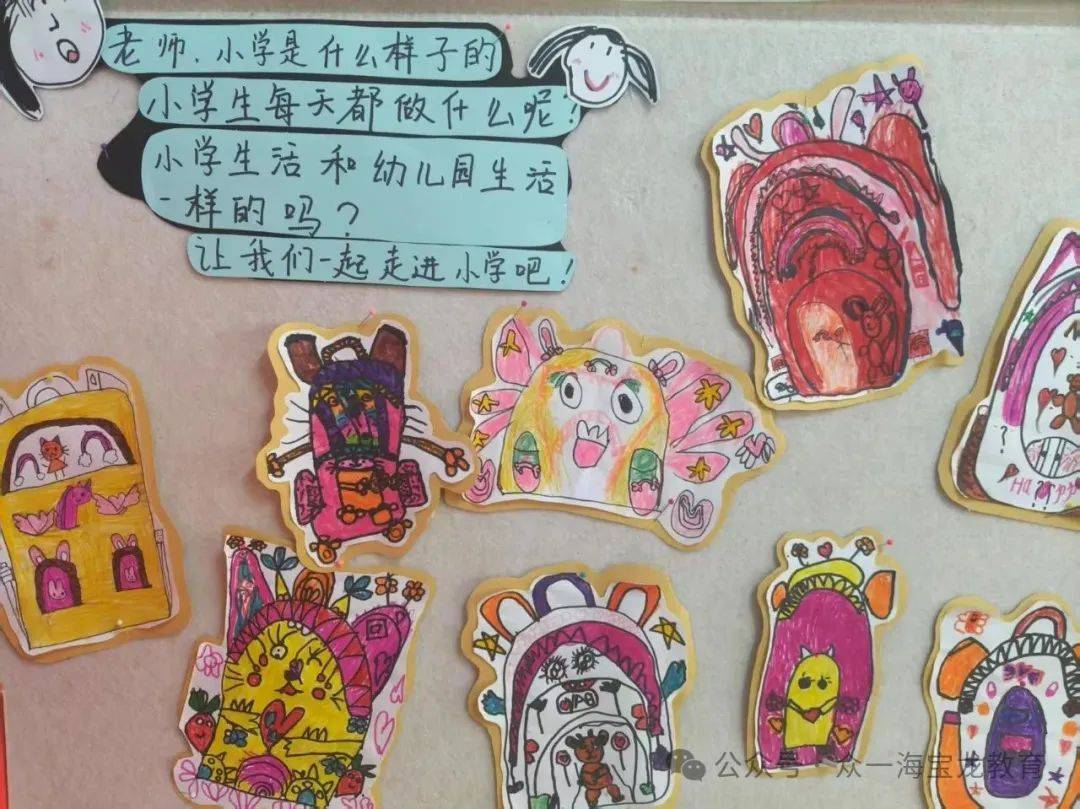 老师，小学是什么样子的
小学生每天都做什么呢？
小学生活和幼儿园生活
一样的吗？
让我们一起走进小学吧！
公众号·众一海宝龙教育